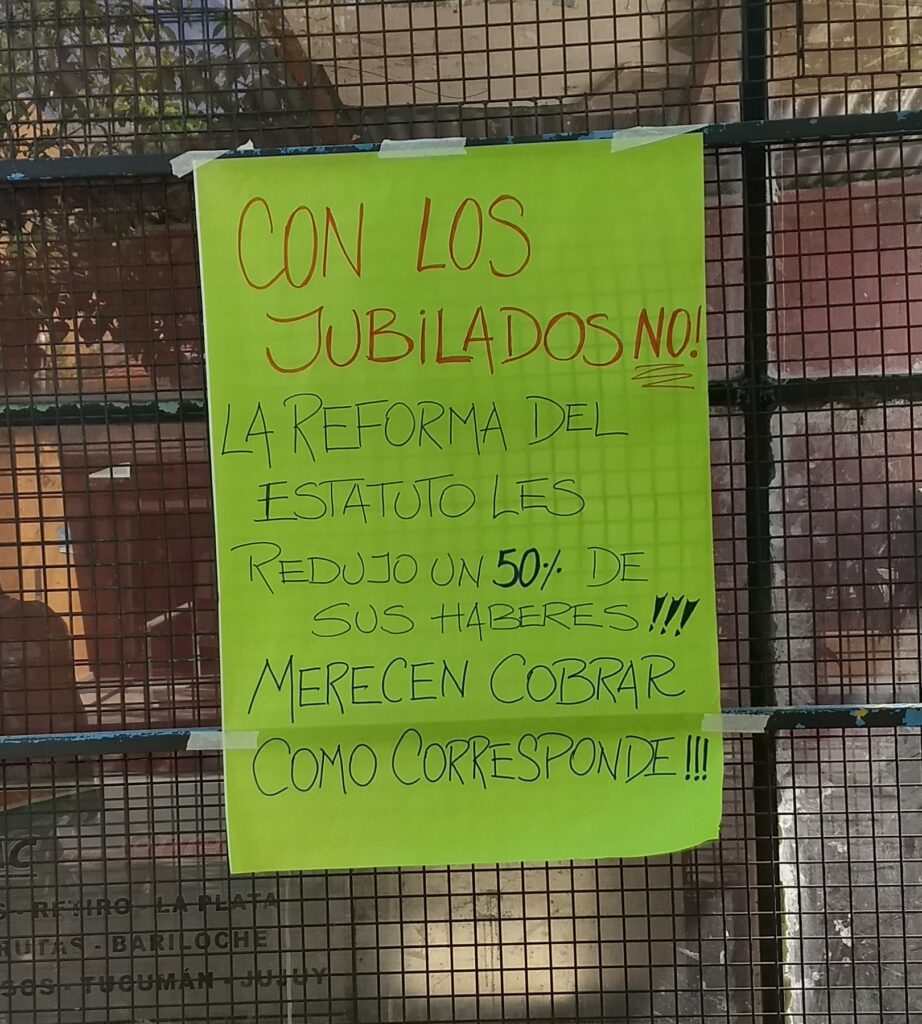 CON LOS
JUBILADOS NO!
LA REFORMA DEL
ESTATUTO LES
REDUJO UN 50% DE
SUS HABERES!!!
MERECEN COBRAR
COMO CORRESPONDE!!!
- RETIRO - LA PLATA
- BARILOCHE
- TUCUMÁN - JUJUY